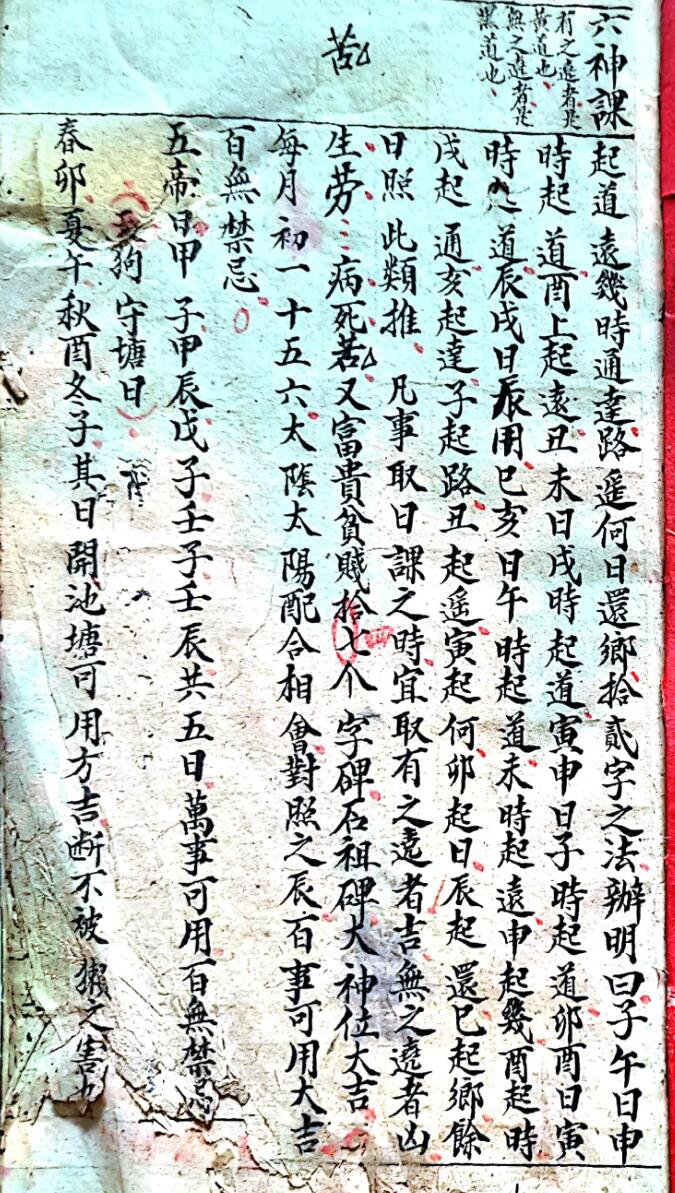 六神課
有之遶者是
黃道也
無之遶者是
黑道也
苦
起道遠幾時通達路遥何日還鄉拾貳字之法辦明曰子午日申
時起道酉上起遠丑未日戌時起道寅申日子時起道卯酉日寅
時起道辰戌日辰用巳亥日午時起道未時起遠申起幾酉起時
戌起通亥起達子起路丑起遥寅起何卯起日辰起還巳起鄉餘
日照此類推凡事取日課之時宜取有之遶者吉無之遶者凶
生劳病死苦又富貴貧賤拾七个字碑石祖碑大神位大吉
每月初一十五六太陰太陽配合相會對照之辰百事可用大吉
百無禁忌
五帝日甲子甲辰戊子壬子壬辰共五日萬事可用百無禁忌
狗守塘日
春卯夏午秋酉冬子其日開池塘可用方吉断不被獺之害也